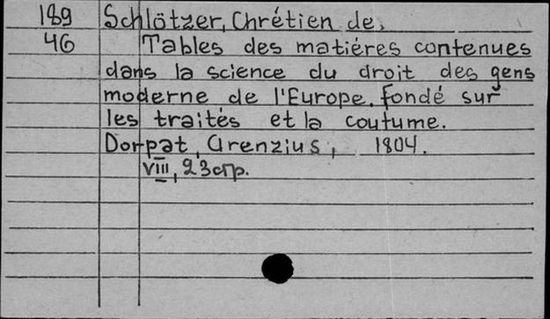 189 Schlötzer, Chrétien de.
46 Tables des matiéres contenues
dans la science du droit des gens
moderne de l'Europe, fondé sur
les traités et la coutume.
Dorpat, Grenzius, 1804.
VIII, 23 стр.